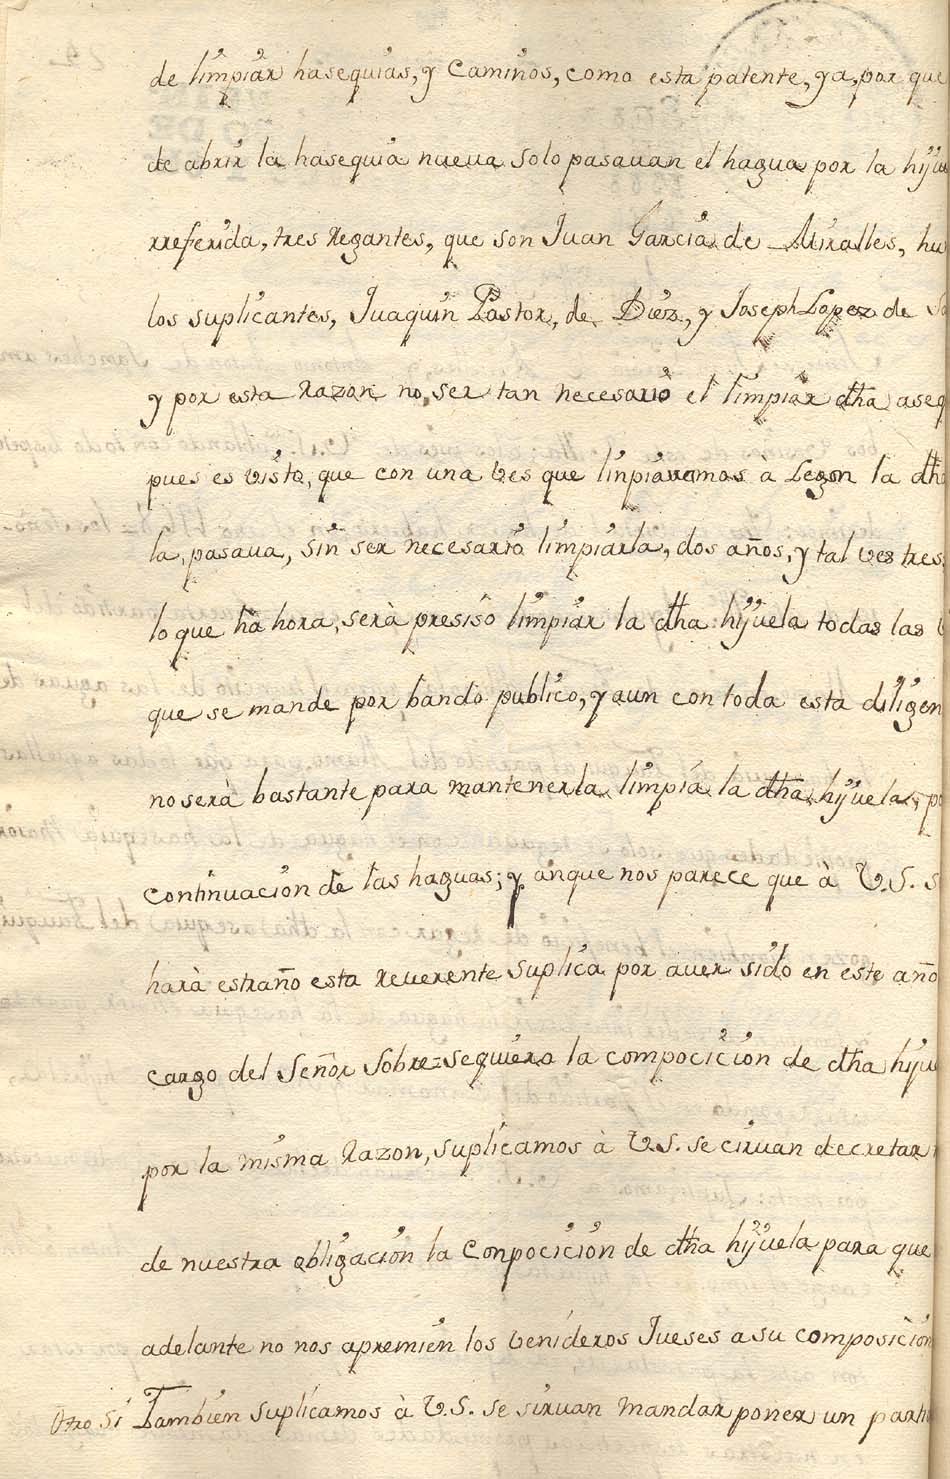 de limpiar hasequias, y Caminos, como esta patente, ya, por que
de abrir la hasequia nueua solo pasauan el hagua por la hij
rreferida, tres Regantes, que son Juan Garcia de Miralles,
los suplicantes, Juaquin Pastor, de Diez, y Joseph Lopez de
y por esta Razon no, ser tan necesario el limpiar dha aseq
pues es visto, que con una ves que linpiauamos à la dha
la, pasaua, sin ser necesario limpiarla, dos años, y tal ves tres
lo que hà hora, serà presiso limpiar la dha hijuela todas las
que se mande por bando publico, y aun con toda esta diligen
no serà bastante para mantenerla limpia la dha hijuela, po
continuacion de las haguas; y anque nos parece que à V.S.
harà estraño esta reuerente suplica por auer sido en este año
cargo del Señor Sobre=sequiero la compocicion de dha hiju
por la misma Razon, suplicamos à V.S. se ciruan decretar
de nuestra obligacion la Conpocicion de dha hijuela para que
adelante no nos apremien los venideros Jueses a su composicion
Otro Si Tambien suplicamos à V.S. se siruan mandar poner un